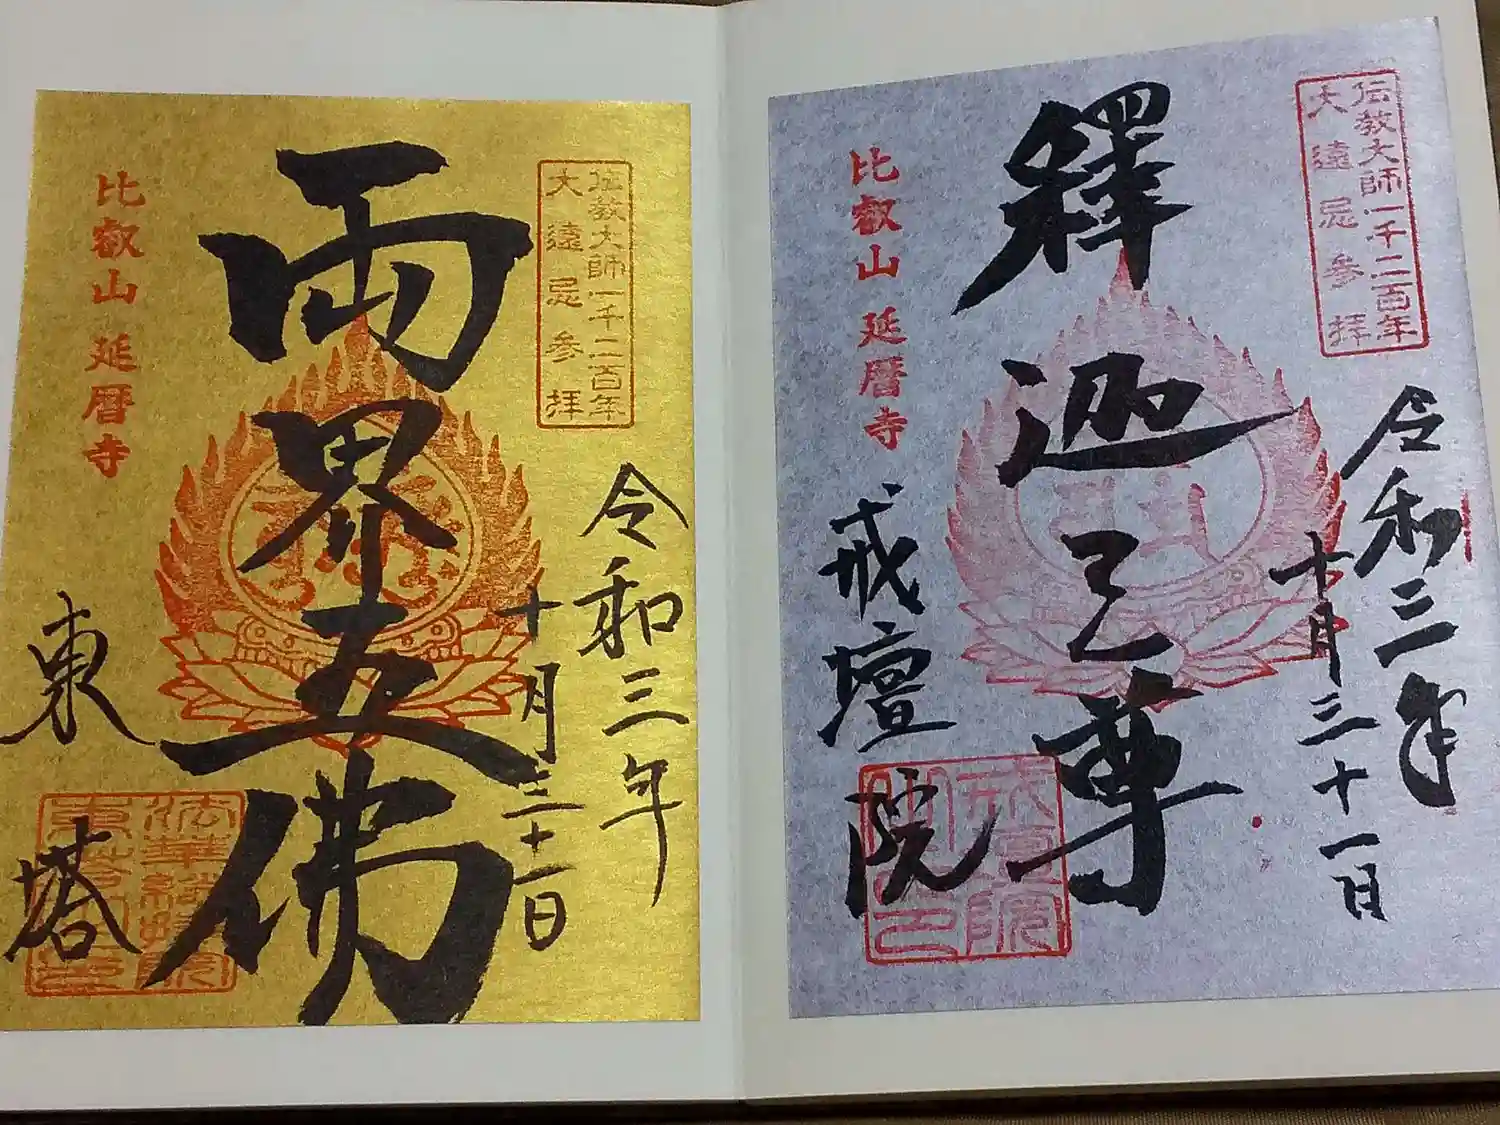 伝教大師一千二百年
大遠忌参拝
令和三年
十月三十一日
釋迦已尊
比叡山 延暦寺
戒壇院
戒壇院
伝教大師一千二百年
大遠忌参拝
令和三年
十月三十一日
両界五佛
比叡山 延暦寺
東塔
法華總持院